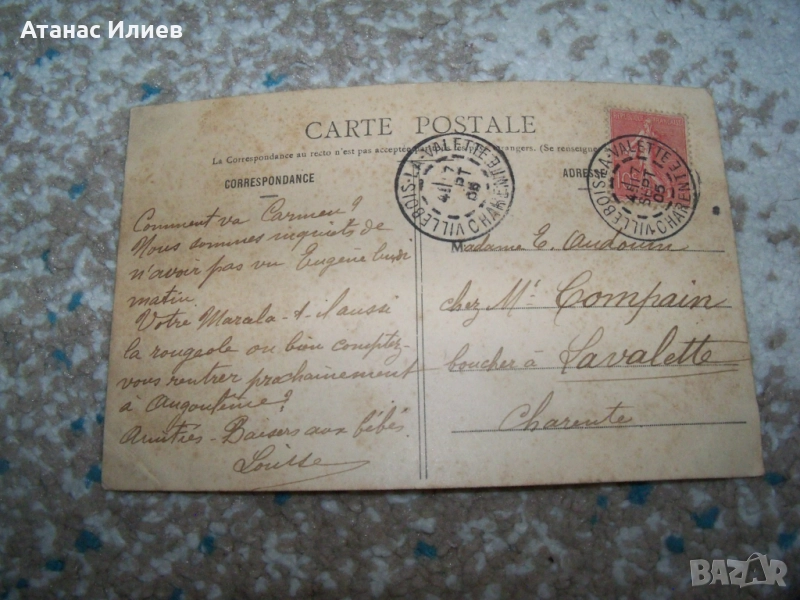 Атанас Илиев
CARTE POSTALE
La Correspondance au recto n'est pas acceptée (Se renseigner
CORRESPONDANCE
ADRESSE
VILLEBOIS-LA-VALETTE
CHARENTE
17
SEPT
05
VILLEBOIS-LA-VALETTE
CHARENTE
17
SEPT
05
Comment va Carmen?
Nous sommes inquiets de
n'avoir pas vu Eugène lundi
matin.
Votre Marala-t-il aussi
la rougeole ou bien comptez-
vous rentrer prochainement
à Angoulême?
Amitiés - Baisers aux bébés
Louise
Madame E. Audouin
chez Mr Compain
boucher à Lavalette
Charente
BAZAR